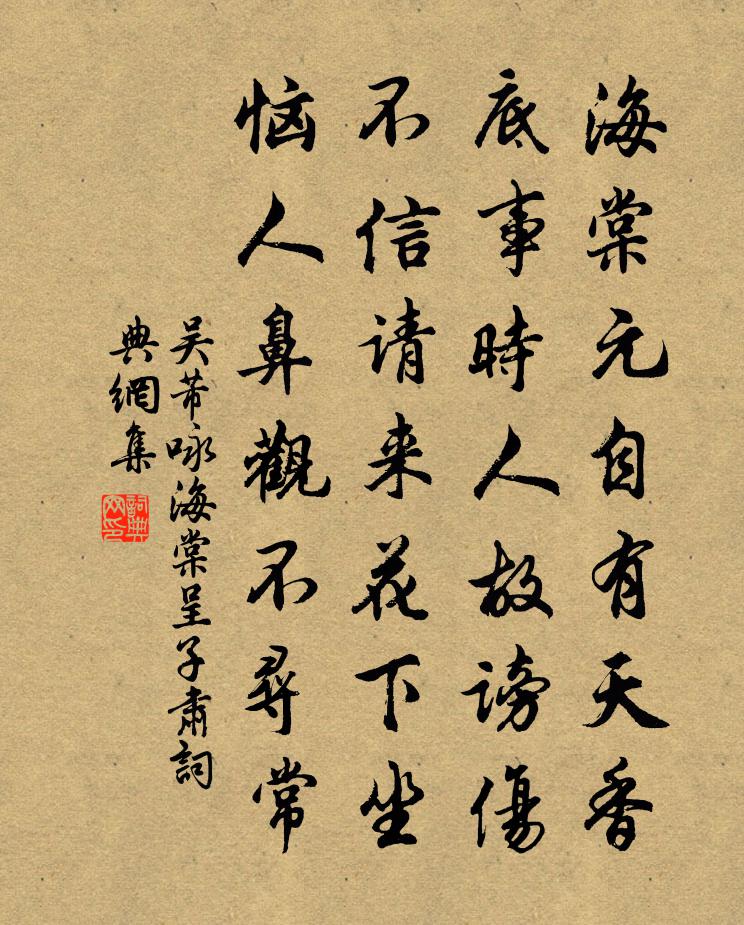 海棠元自有天香
底事時人故謗傷
不信请来花下坐
恼人鼻觀不尋常
吴芾咏海棠呈子肅詞
典網集
詞典網印